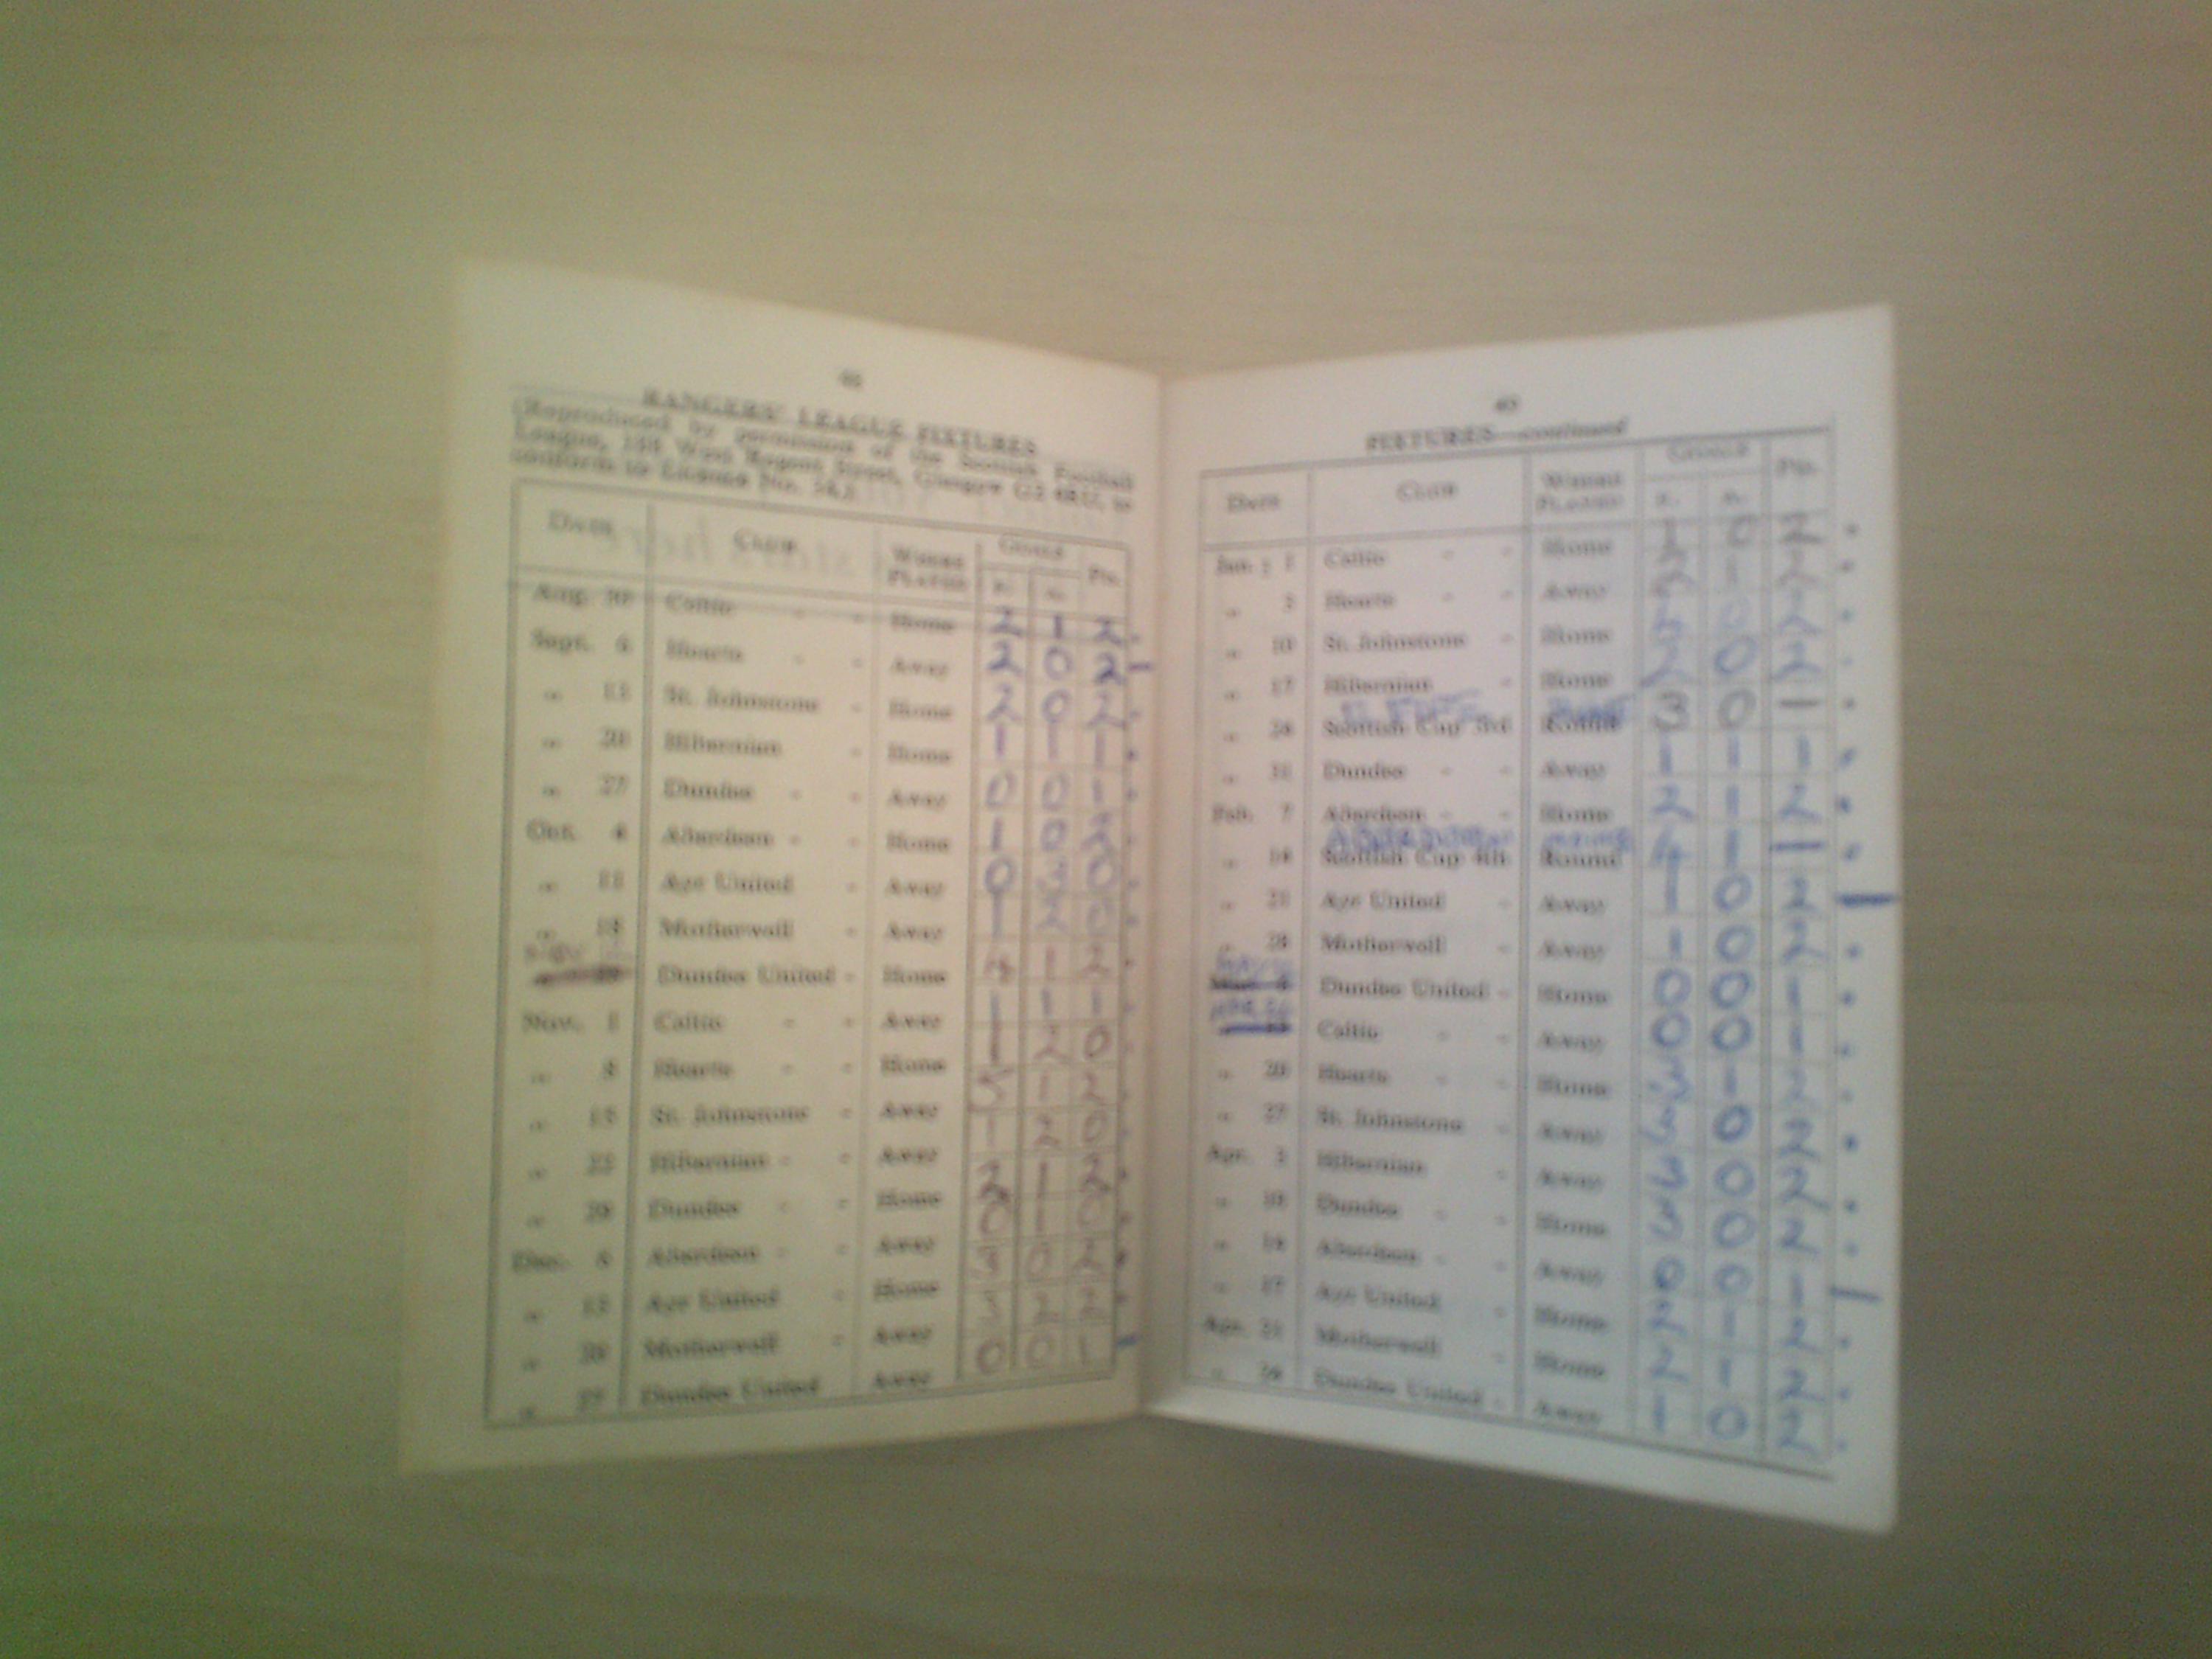 RANGERS' LEAGUE FIXTURES
(Reproduced by permission of the Scottish Football
League, 188 West Regent Street, Glasgow G2 4RY, to
conform to Licence No.
Date Club Where Played Goals F. A. Pts.
Aug. 30 Celtic - - Home 2 1 2
Sept. 6 Hearts - - Away 2 0 2
„ 13 St. Johnstone - Home 2 0 2
„ 20 Hibernian - Home 1 1 1
„ 27 Dundee - - Away 0 0 1
Oct. 4 Aberdeen - - Home 1 0 2
„ 11 Ayr United - Away 0 3 0
„ 18 Motherwell - Away 1 2 0
Dundee United - Home 4 1 2
Nov. 1 Celtic - - Away 1 1 1
„ 8 Hearts - - Home 1 2 0
„ 15 St. Johnstone - Away 5 1 2
„ 22 Hibernian - - Away 1 2 0
„ 29 Dundee - - Home 2 1 2
Dec. 6 Aberdeen - - Away 0 1 0
„ 13 Ayr United - Home 3 0 2
„ 20 Motherwell - Away 3 2 2
„ 27 Dundee United Away 0 0 1
FIXTURES—continued
Date Club Where Played Goals F. A. Pts.
Jan. 1 Celtic - - Home 1 0 2
„ 3 Hearts - - Away 2 1 2
„ 10 St. Johnstone - Home 0 2
„ 17 Hibernian - Home 2 0 2
„ 24 Scottish Cup 3rd Round 3 0 —
„ 31 Dundee - - Away 1 1 1
Feb. 7 Aberdeen - - Home 2 1 2
„ 14 Scottish Cup 4th Round 4 1 —
„ 21 Ayr United - Away 1 0 2
„ 28 Motherwell - Away 1 0 2
Dundee United - Home 0 0 1
Celtic - - Away 0 0 1
„ 20 Hearts - - Home 3 1 2
„ 27 St. Johnstone - Away 3 0 2
Apr. 3 Hibernian - Away 3 0 2
„ 10 Dundee - - Home 3 0 2
„ 14 Aberdeen - - Away 0 0 1
„ 17 Ayr United - Home 2 1 2
Apr. 21 Motherwell - Home 2 1 2
„ 24 Dundee United - Away 1 0 2